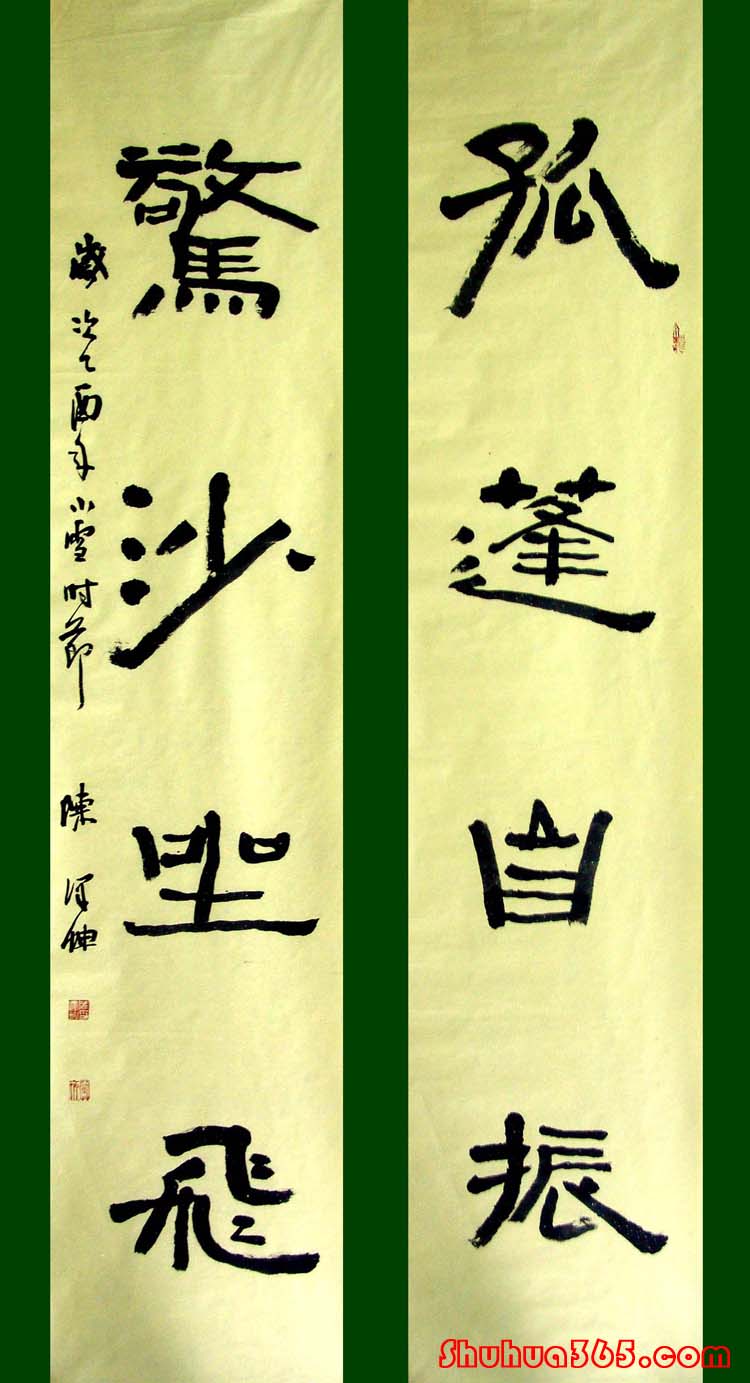 孤蓬自振
驚沙坐飛
歲次乙酉年小雪时節
陳
Shuhua365.com